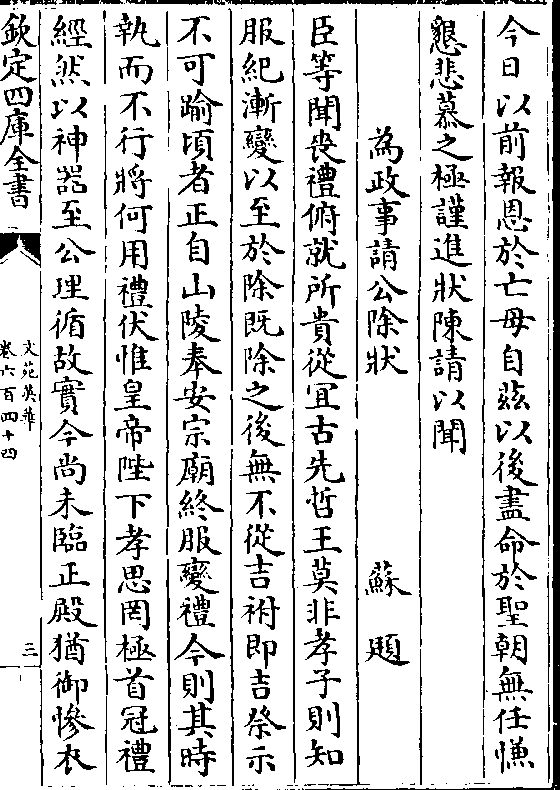 今日以前報恩於亡母自茲以後盡命於聖朝無任慊
懇悲慕之極謹進狀陳請以聞
為政事請公除狀 蘇頲
臣等聞喪禮俯就所貴從宜古先哲王莫非孝子則知
服紀漸變以至於除既除之後無不從吉祔即吉祭示
不可踰頃者正自山陵奉安宗廟終服變禮今則其時
執而不行將何用禮伏惟皇帝陛下孝思罔極首冠禮
經然以神器至公理循故實今尚未臨正殿猶御慘衣
欽定四庫全書
文苑英華
卷六百四十四
三